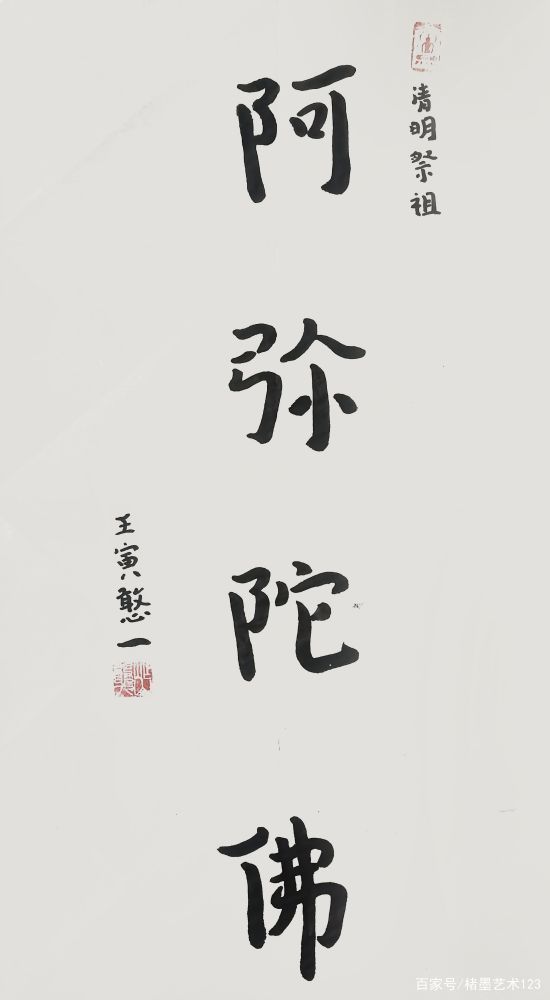 清明祭祖
阿弥陀佛
壬寅憨一
百家号/楮墨艺术123